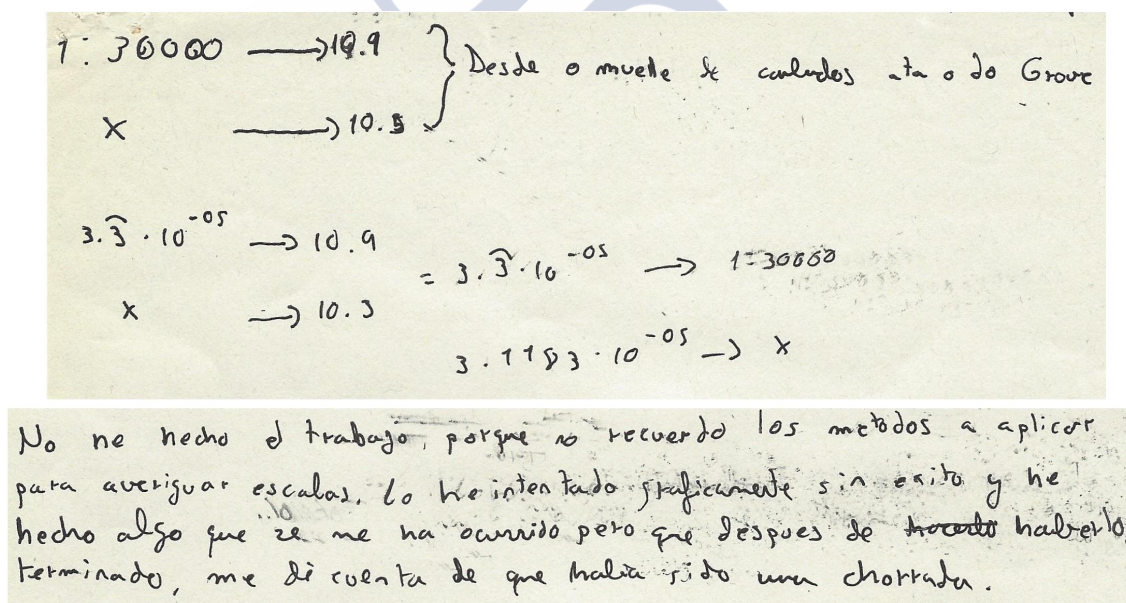 1:30000 → 10.9 } Desde o muelle de ata o do Grove
x → 10.5
3.3͡ · 10^-05 → 10.9
x → 10.3
= 3.3͡ · 10^-05 → 1:30000
3.1183 · 10^-05 → x
No he hecho el trabajo, porque no recuerdo los metodos a aplicar
para averiguar escalas. Lo he intentado graficamente sin exito y he
hecho algo que se me ha ocurrido pero que despues de haberlo
terminado, me di cuenta de que habia sido una chorrada.